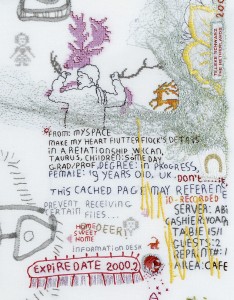 TILLEKE SCHWARZ
THE NETHERLANDS
FROM: MYSPACE
MAKE MY HEART FLUTTER FLOCK'S DETAILS
IN A RELATIONSHIP, WICCAN,
TAURUS, CHILDREN: SOME DAY
GRAD/PROF. DEGREE: IN PROGRESS,
FEMALE: 19 YEARS OLD. UK.
DON'T
THIS CACHED PAGE MAY REFERENE
ID-RECORDED
PREVENT RECEIVING
CERTAIN FILES...
SERVER: ABI
CASHIER: YOANA
TABLE 15/1
GUESTS: 2
REPRINT#: 1
AREA: CAFE
HOME
SWEET
HOME
DEER!
INFORMATION DESK
EXPIRE DATE 2000.2